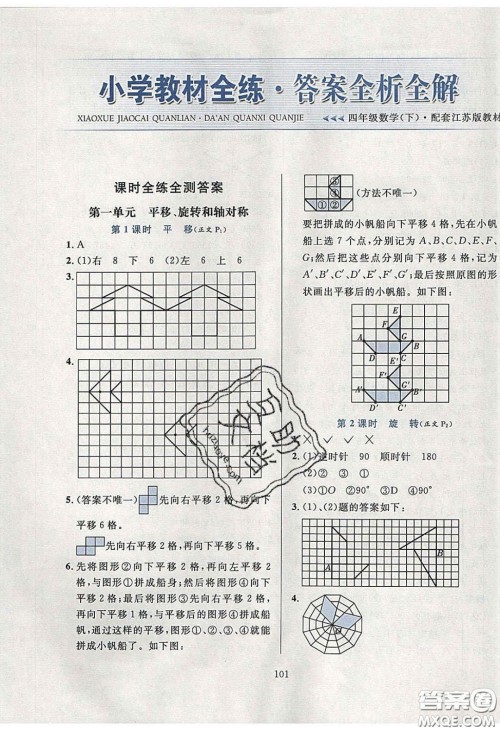 小学教材全练·答案全析全解
XIAOXUE JIAOCAI QUANLIAN · DA'AN QUANXI QUANJIE
四年级数学(下)·配套江苏版教材
课时全练全测答案
第一单元 平移、旋转和轴对称
第1课时 平 移(正文P₁)
1. A
2. (1)右 8 下 6 (2)左 6 上 6
3.
4.
5. (答案不唯一) 先向右平移2格,再向下
平移6格。
先向右平移2格,再向下平移5格。
6. 先将图形②向下平移2格,再向左平移2
格,与图形①拼成船身;然后将图形④向右
平移2格,再向下平移1格,与图形③拼成
船帆。通过这样的平移,图形①、②、③、④就能
拼成小帆船了。如下图:
① ② ③ ④
(方法不唯一)
要把拼成的小帆船向下平移4格,先在小帆
船上选7个点,分别记为A、B、C、D、E、F、
G;然后把这些点分别向下平移4格,记为
A′、B′、C′、D′、E′、F′、G′;最后按照原图的形
状画出平移后的小帆船。如下图:
E
F G
A B
D C
E′
F′ G′
A′ B′
D′ C′
第2课时 旋 转(正文P₂)
1. × ✓ ✓ ×
2. (1)逆时针 90 顺时针 180
(2)② ③ ①
(3)①O 90° ③D ④90°
3. (1)、(2)题的答案如下:
A
B
4.
101
互助文档
huzuye.com
答案圈
MXQE.COM